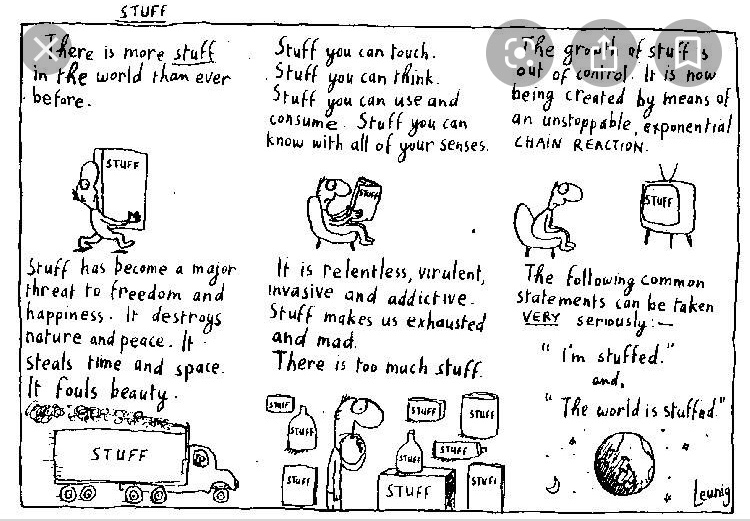 STUFF
There is more stuff
in the world than ever
before.
STUFF
Stuff has become a major
threat to freedom and
happiness. It destroys
nature and peace. It
steals time and space.
It fouls beauty.
STUFF
Stuff you can touch.
Stuff you can think.
Stuff you can use and
consume. Stuff you can
know with all of your senses.
STUFF
It is relentless, virulent,
invasive and addictive.
Stuff makes us exhausted
and mad.
There is too much stuff.
STUFF
STUFF
STUFF
STUFF
STUFF
STUFF
STUFF
STUFF
STUFF
The growth of stuff is
out of control. It is now
being created by means of
an unstoppable, exponential
CHAIN REACTION.
STUFF
The following common
statements can be taken
VERY seriously:—
"I'm stuffed."
and,
"The world is stuffed."
Leunig